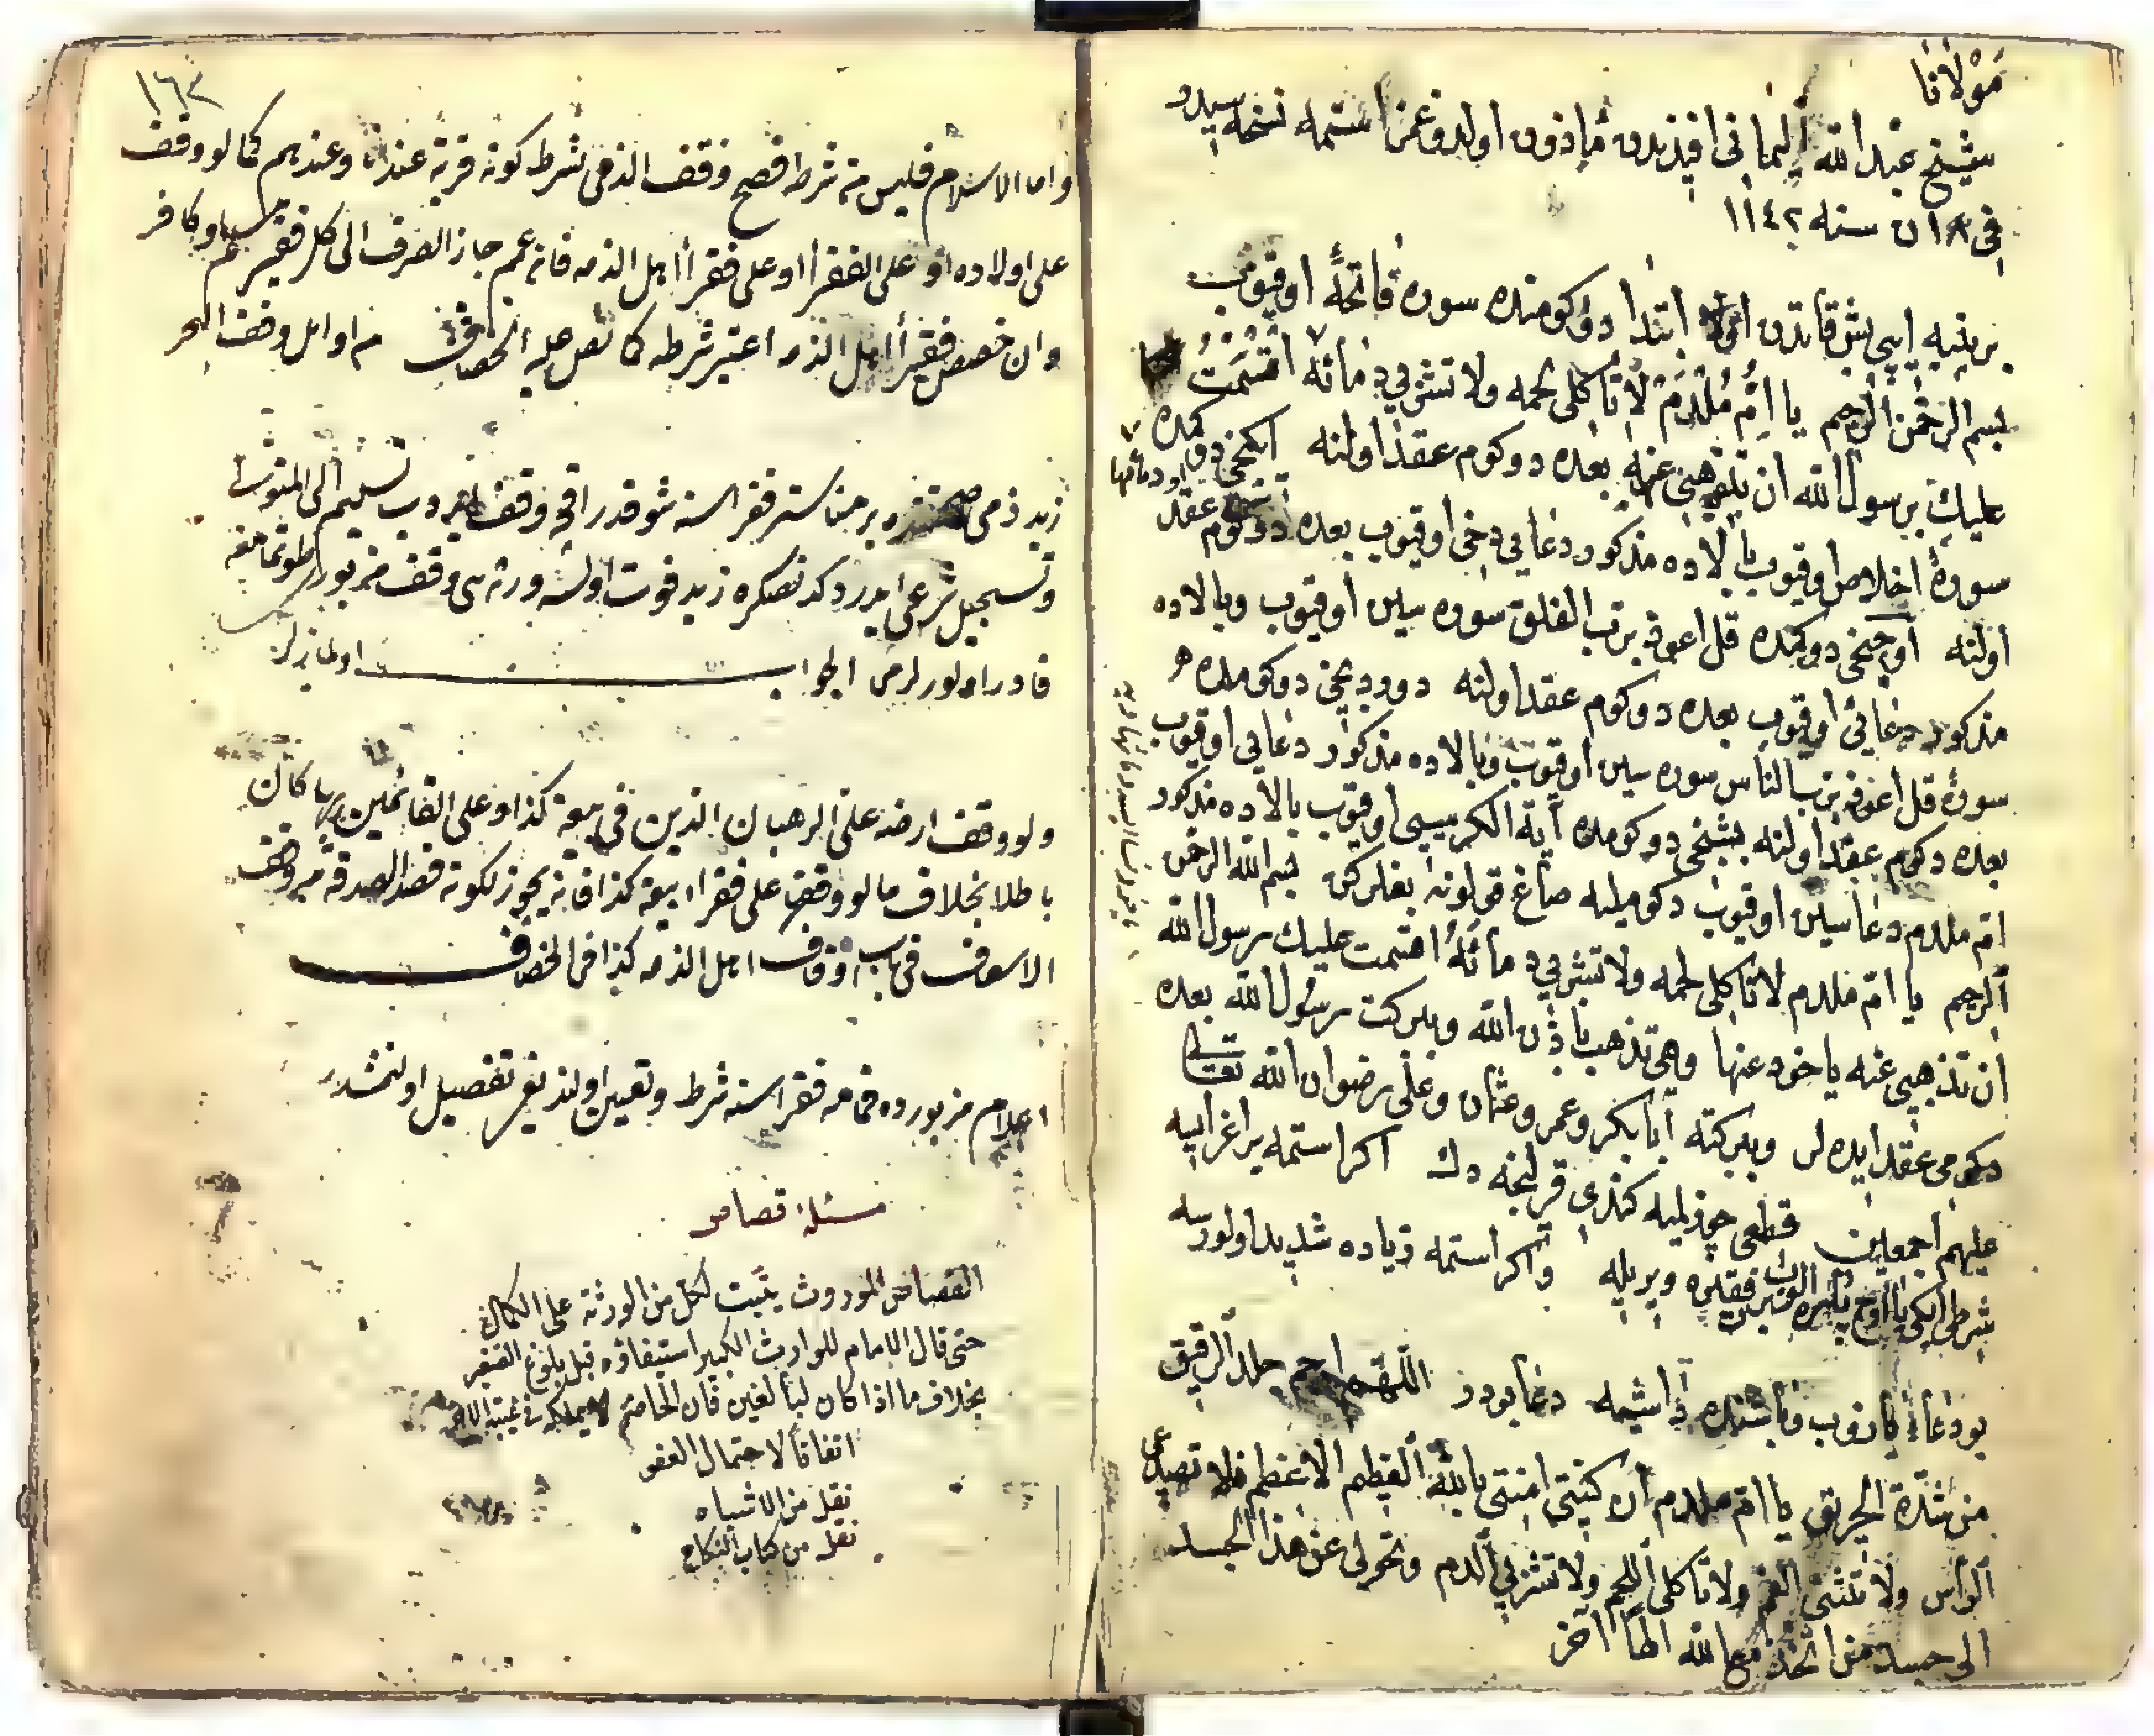 مولانا
شيخ عبد الله اليماني افنديدن مأذون اولدوغمز استمه نسخه سيدر
في ١٨ ن سنه ١١٤٢
بر ينبه ايپي بش قاتدن اولا ابتدا دوكومنده سوره فاتحه اوقيوب
بسم الله الرحمن الرحيم يا ام ملدم لا تأكلي لحمه ولا تشربي دمائه اقسمت
عليك برسول الله ان تذهبي عنه بعده دوكوم عقد اولنه ايكنجي دوكمده
سورة اخلاص اوقيوب بالاده مذكور دعايي دخي اوقيوب بعده دوكوم عقد
اولنه اوچنجي دوكمده قل اعوذ برب الفلق سوره سين اوقيوب وبالاده
مذكور دعايي اوقيوب بعده دوكوم عقد اولنه دوردنجي دوكومده
سورة قل اعوذ برب الناس سوره سين اوقيوب وبالاده مذكور دعايي اوقيوب
بعده دكوم عقد اولنه بشنجي دوكومده آية الكرسيي اوقيوب بالاده مذكور
ام ملدم دعاسين اوقيوب دكوميله صاغ قولونه بغليركن بسم الله الرحمن
الرحيم يا ام ملدم لا تأكلي لحمه ولا تشربي دمائه اقسمت عليك برسول الله
ان تذهبي عنه ياخود عنها وهي تذهب باذن الله وبركت رسول الله بعده
دكومي عقد ايده لر وببركة ابا بكر وعمر وعثمان وعلى رضوان الله تعالى
عليهم اجمعين قطعي چوزلميه كندي قرلنجه دك اكر استمه براغر ايسه
شرطي ايكي يا اوچ پاره الوب بر فقيره ويريله واكر استمه زياده شديد اولورسه
بو دعاء يازوب باشنده طاشيمه دعا بودر اللهم ارحم جلد الرقيق
من شدة الحريق يا ام ملدم ان كنتي امنتي بالله العظيم الاعظم فلا تصدعي
الرأس ولا تنتني الفم ولا تأكلي اللحم ولا تشربي الدم وتحولي عن هذا الجسد
الى جسد من اتخذ مع الله الها آخر
١٦٣
واما الاسلام فليس من شرطه فصح وقف الذمي بشرط كونه قربة عندنا وعندهم كما لو وقف
على اولاده او على الفقرأ او على فقرأ اهل الذمه فان عمم جاز الصرف الى كل فقير مسلم وكافر
وان خصص فقرأ اهل الذمه اعتبر شرطه كما نص عليه الخصاف من اوائل وقف البحر
زيد ذمي صحتنده بر مناستر فقراسنه شو قدر اقچه وقف ايدوب تسليم الى المتولي
وتسجيل شرعي ايدردكدنصكره زيد فوت اولسه ورثه سي وقف مزبوري طوتمامغه
قادر اولورلرمي الجواب اولمازلر
ولو وقف ارضه على الرهبان الذين في بيعة كذا او على القائمين بها كان
باطلا بخلاف ما لو وقف على فقراء بيعة كذا فانه يجوز لكونه قصد الصدقة من وقف
الاسعاف في باب اوقاف اهل الذمه كذا في الخصاف
اعلام مزبورده فمامه فقراسنه شرط وتعيين اولنديغي تفصيل اولنمشدر
مسئله قصاص
القصاص الموروث يثبت لكل من الورثة على الكمال
حتى قال الامام للوارث الكبير استيفاؤه قبل بلوغ الصغير
بخلاف ما اذا كان لبالغين فان الحاضر لا يملكه في غيبة الاخر
اتفاقا لاحتمال العفو
نقل من الاشباه
نقل من كتاب النكاح